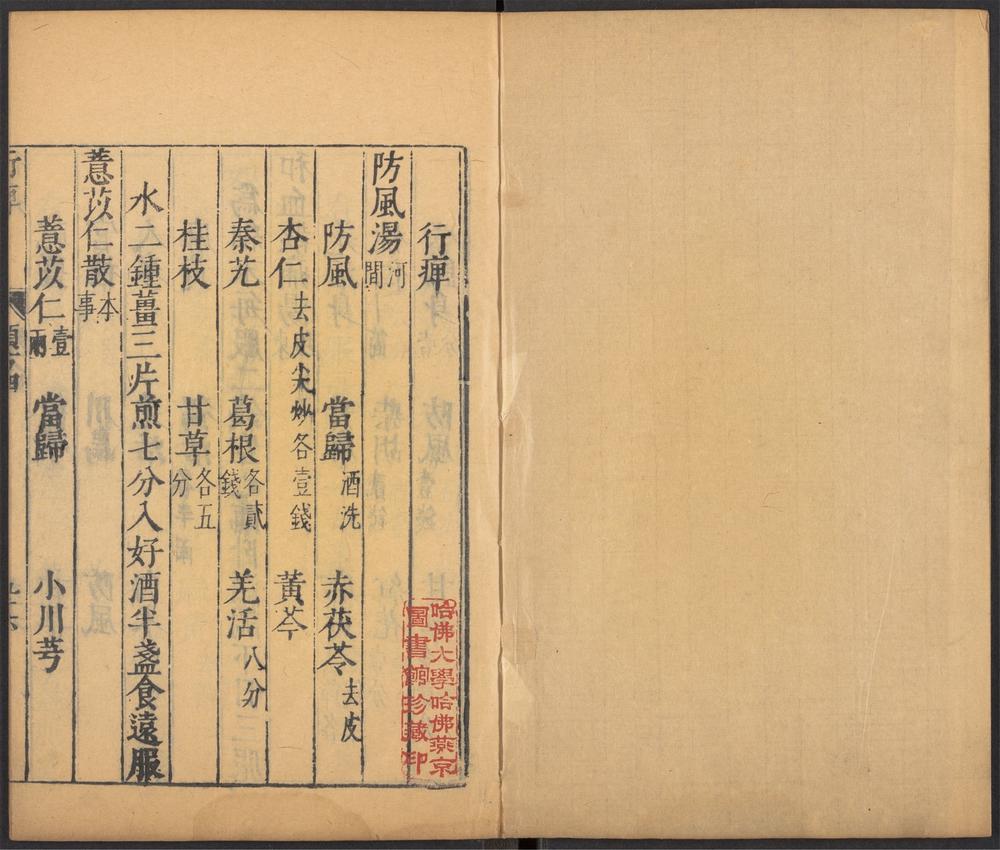 行痺
防風湯河間
防風 當歸酒洗 赤茯苓去皮
杏仁去皮尖炒各壹錢 黃芩
秦艽 葛根各貳錢 羌活八分
桂枝 甘草各五分
水二鍾薑三片煎七分入好酒半盞食遠服
薏苡仁散本事
薏苡仁壹兩 當歸 小川芎
哈佛大學哈佛燕京
圖書館珍藏印